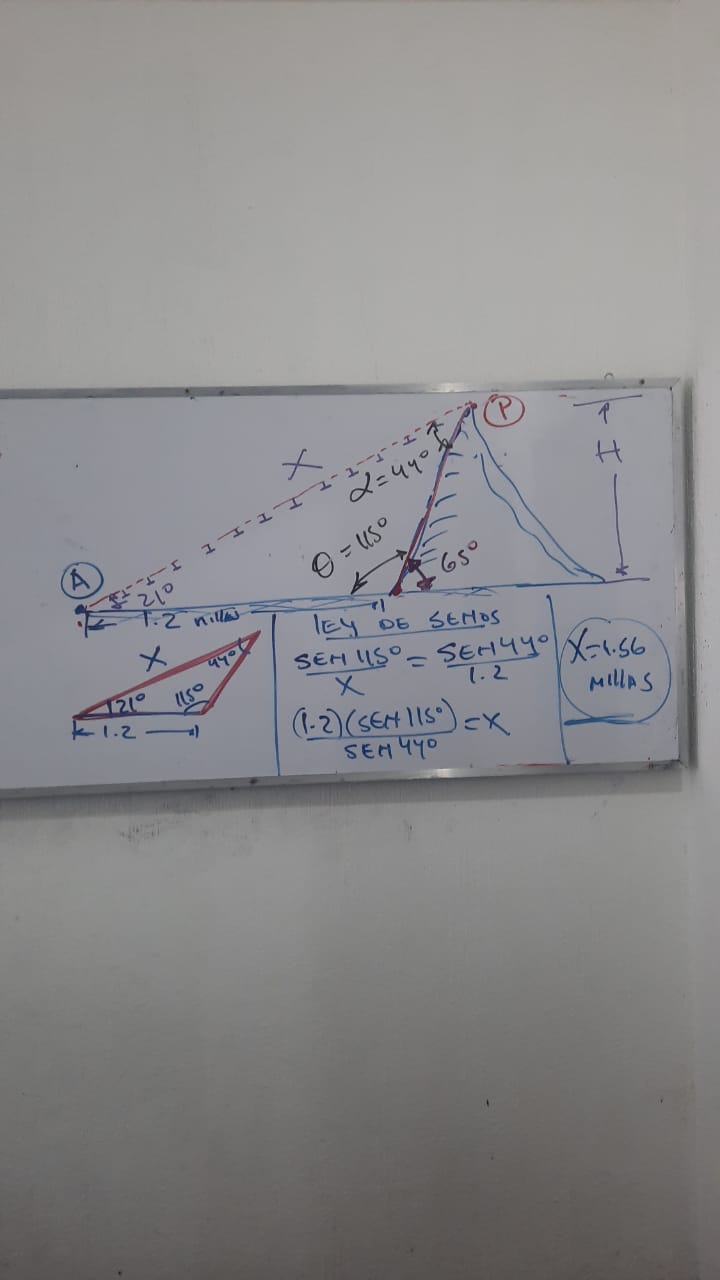 P
H
X
α=44°
θ=115°
65°
A
21°
1.2 millas
X
44°
21°
115°
1.2
LEY DE SENOS
SEN 115° = SEN 44°
X 1.2
(1.2)(SEN 115°) = X
SEN 44°
X=1.56
MILLAS